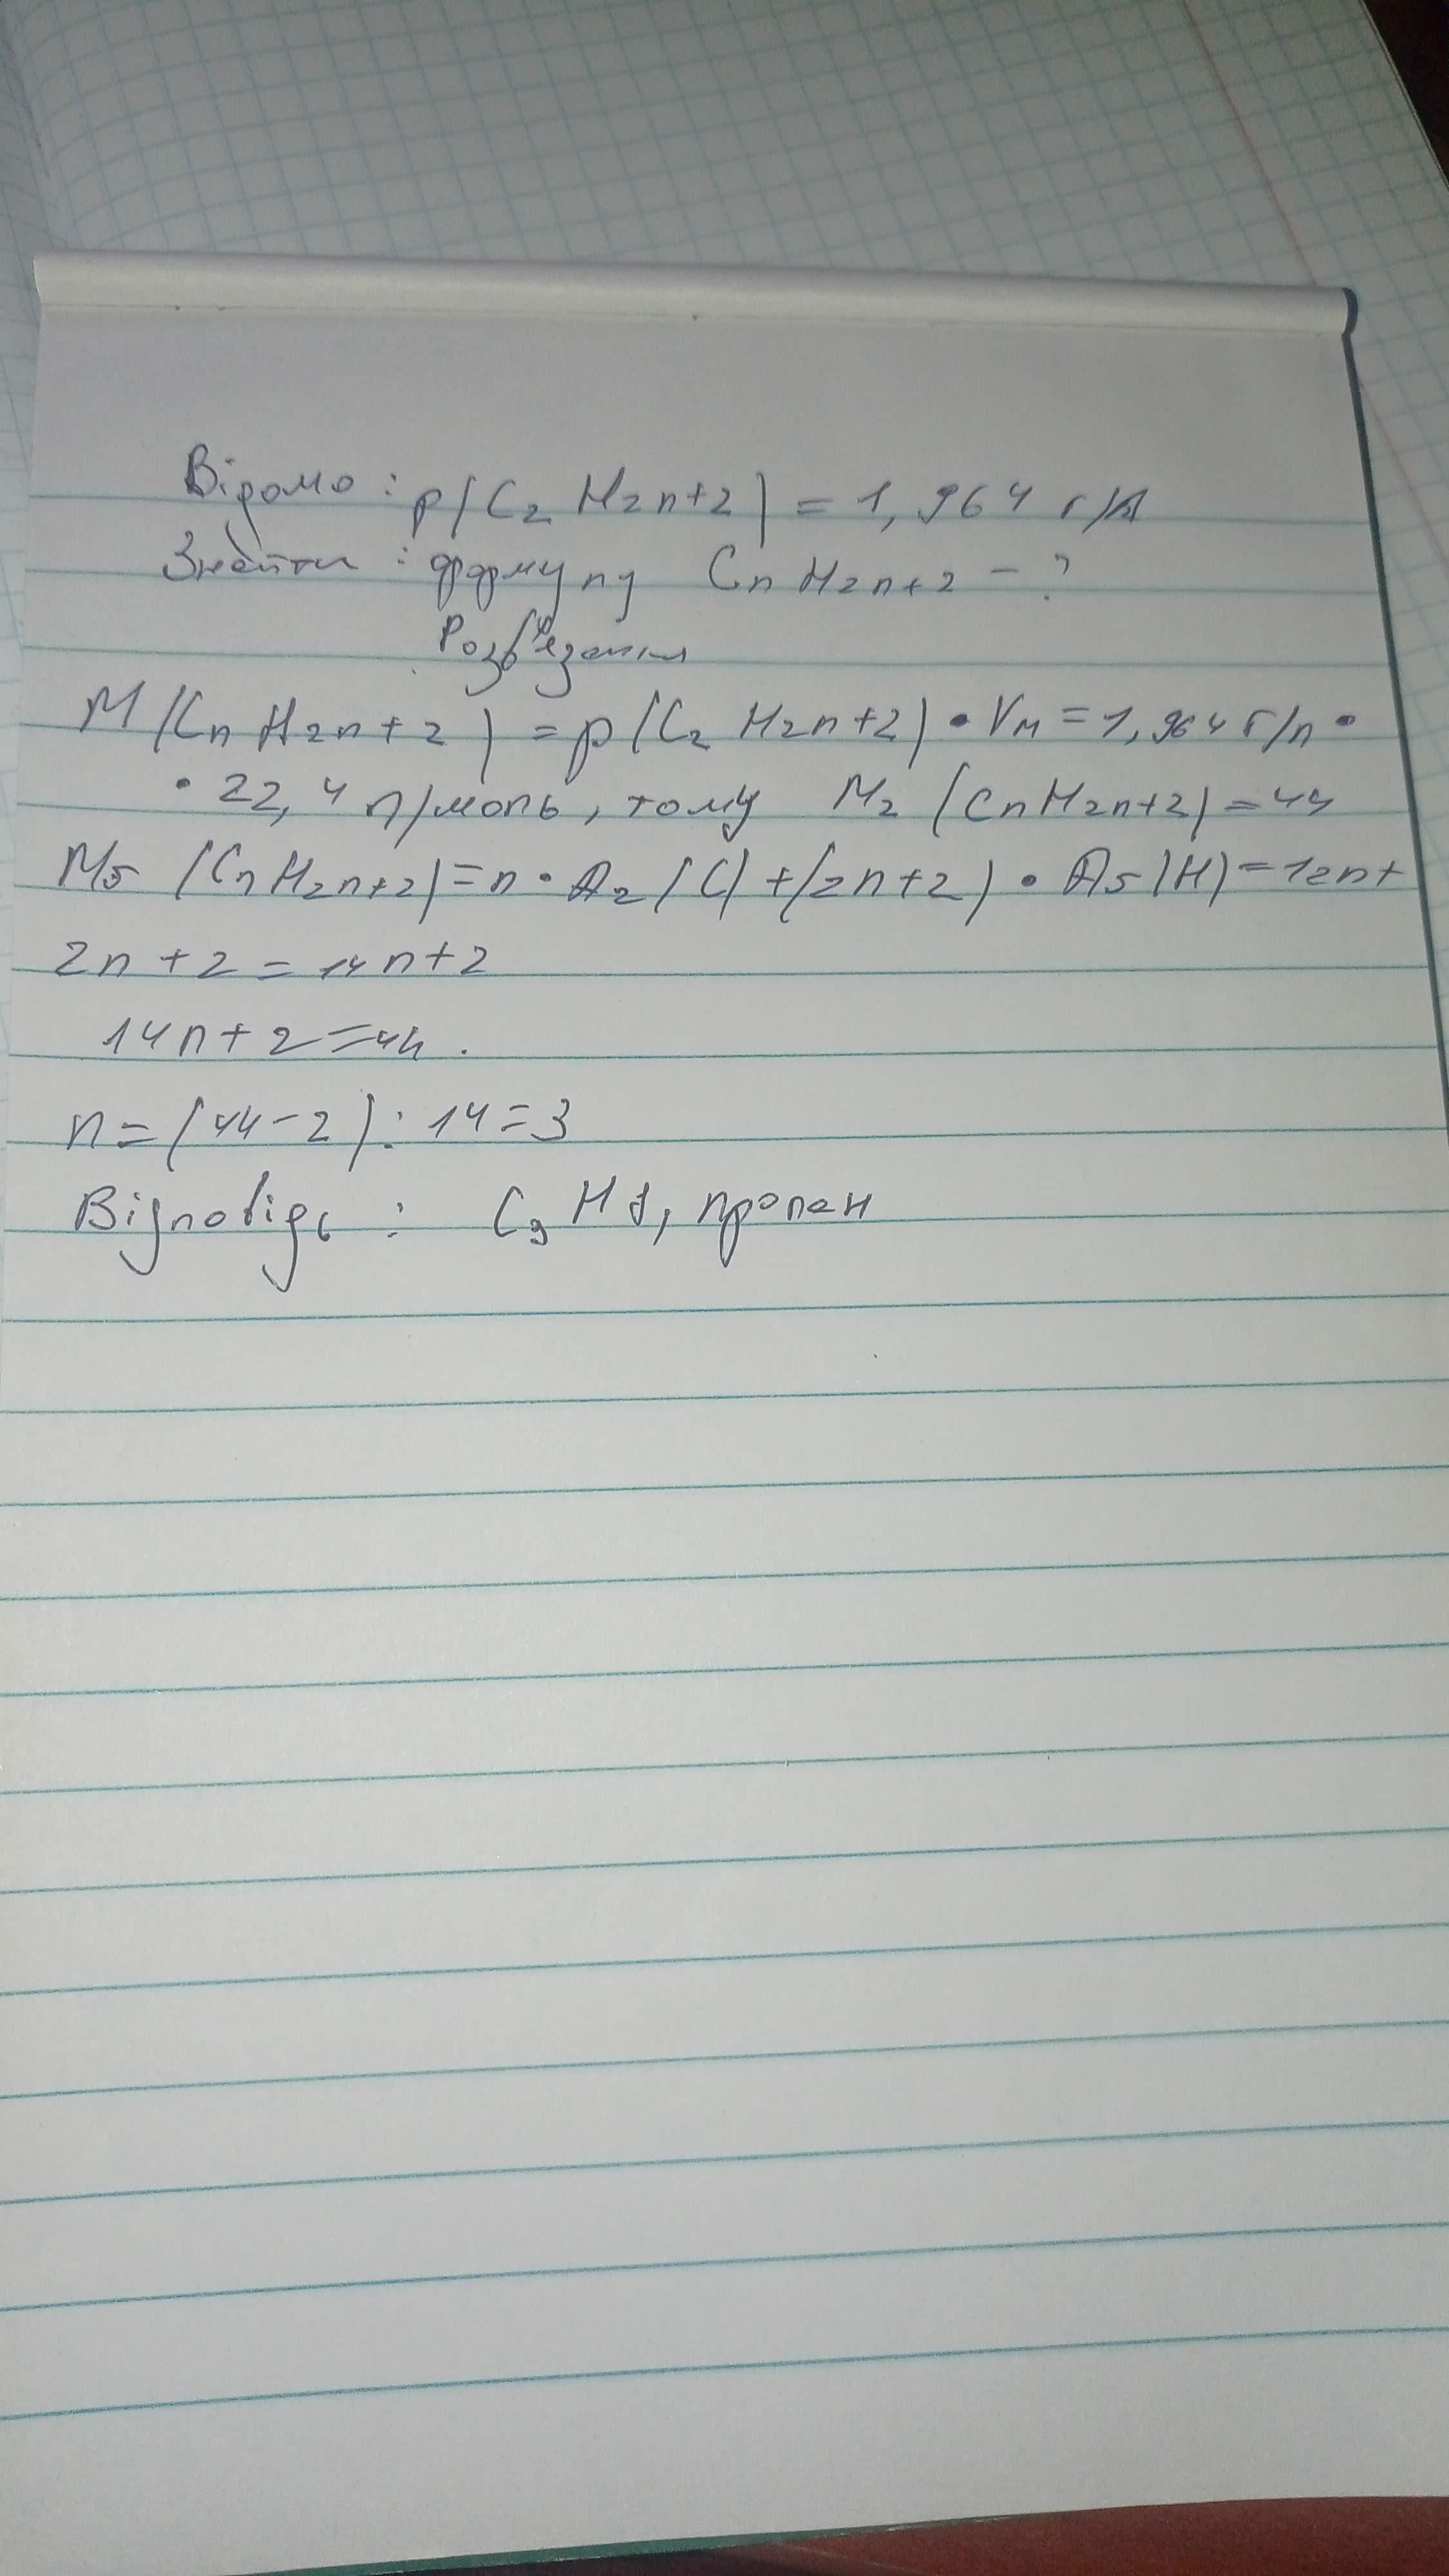 Відомо: ρ(C2 H2n+2) = 1,964 г/л
Знайти: формулу CnH2n+2 - ?
Розв'язання
M(CnH2n+2) = ρ(C2H2n+2) • Vм = 1,964 г/л •
• 22,4 л/моль, тому M2 (CnH2n+2) = 44
Ms (CnH2n+2) = n • A2 (C) + (2n+2) • As (H) = 12n+
2n + 2 = 14n+2
14n + 2 = 44.
n = (44 - 2) : 14 = 3
Відповідь : C3H8, пропан